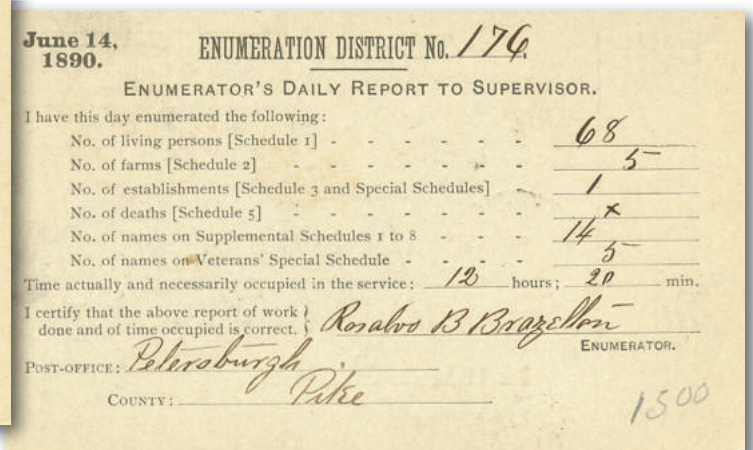 June 14,
1890.
ENUMERATION DISTRICT No. 176.
ENUMERATOR'S DAILY REPORT TO SUPERVISOR.
I have this day enumerated the following:
No. of living persons [Schedule 1] - - - - - - 68
No. of farms [Schedule 2] - - - - - - 5
No. of establishments [Schedule 3 and Special Schedules] - 1
No. of deaths [Schedule 5] - - - - - - x
No. of names on Supplemental Schedules 1 to 8 - - - 14
No. of names on Veterans' Special Schedule - - - - 5
Time actually and necessarily occupied in the service: 12 hours; 20 min.
I certify that the above report of work
done and of time occupied is correct. } Rosalvo B Brazelton
ENUMERATOR.
POST-OFFICE: Petersburgh.
COUNTY: Pike
1500